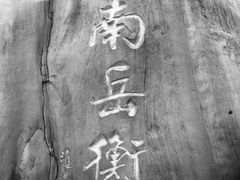 南岳衡